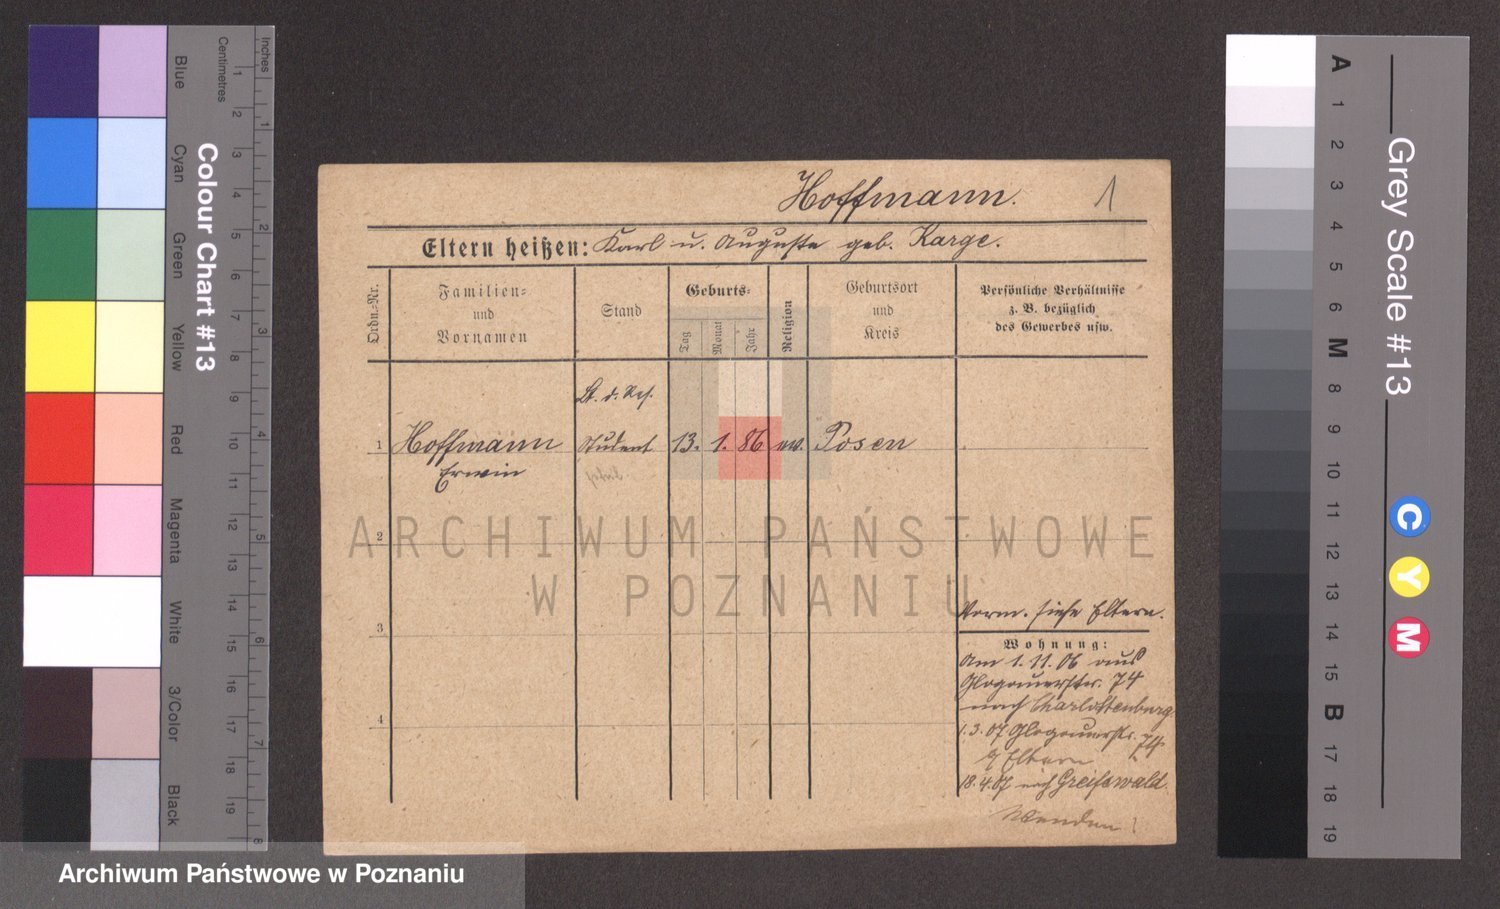 Hoffmann. 1
Eltern heißen: Karl u. Auguste geb. Karge.
Ordn.-Nr.
Familien-
und
Vornamen
Stand
Geburts-
Tag
Monat
Jahr
Religion
Geburtsort
und
Kreis
Persönliche Verhältnisse
z. B. bezüglich
des Gewerbes usw.
Lt. d. Res.
1 Hoffmann Student 13. 1. 86 ev. Posen
Erwin
2
3
4
Vorm. siehe Eltern.
Wohnung:
Am 1.11.06 aus
Glogauerstr. 74
nach Charlottenburg
1.3.07 Glogauerstr. 74
Eltern
18.4.07 nach Greifswald.
Wenden!
ARCHIWUM PAŃSTWOWE
W POZNANIU
Archiwum Państwowe w Poznaniu
Colour Chart #13
Blue
Cyan
Green
Yellow
Red
Magenta
White
3/Color
Black
Centimetres
1 2 3 4 5 6 7 8 9 10 11 12 13 14 15 16 17 18 19
Inches
1 2 3 4 5 6 7 8
Grey Scale #13
A 1 2 3 4 5 6 M 8 9 10 11 12 13 14 15 B 17 18 19
C
Y
M